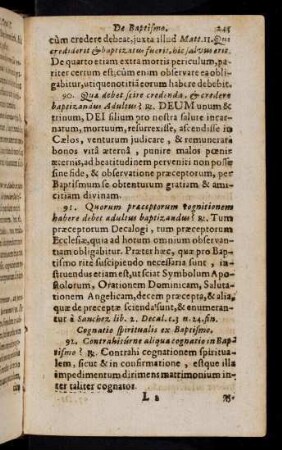 De Baptismo. 245
cùm credere debeat, juxta illud Matt. 11. Qui
crediderit & baptizatus fuerit, hic salvus erit.
De quarto etiam extra mortis periculum, pa-
riter certum est, cùm enim observare ea obli-
gabitur, utique notitiã eorum habere debebit.
90. Quæ debet scire credenda, & credere
baptizandus Adultus? ℞. DEUM unum &
trinum, DEI filium pro nostra salute incar-
natum, mortuum, resurrexisse, ascendisse in
Cælos, venturum judicare, & remunerari
bonos vitâ æternâ, punire malos pœnis
æternis, ad beatitudinem perveniri non posse
sine fide, & observatione præceptorum, per
Baptismum se obtenturum gratiam & ami-
citiam divinam.
91. Quorum præceptorum cognitionem
habere debet adultus baptizandus? ℞. Tum
præceptorum Decalogi, tum præceptorum
Ecclesiæ, quia ad horum omnium observan-
tiam obligabitur. Præter hæc, quæ pro Bap-
tismo ritè suscipiendo necessaria sunt, in-
stituendus etiam est, ut sciat Symbolum Apo-
stolorum, Orationem Dominicam, Saluta-
tionem Angelicam, decem præcepta, & alia,
quæ de præceptæ scienda sunt, & enumeran-
tur à Sanchez lib. 2. Decal. c. 3 n. 24. fin.
Cognatio spiritualis ex Baptismo.
92. Contrahiturne aliqua cognatio in Bap-
tismo? ℞. Contrahi cognationem spiritua-
lem, sicut & in confirmatione, estque illa
impedimentum dirimens matrimonium in-
ter taliter cognatos.
L 3